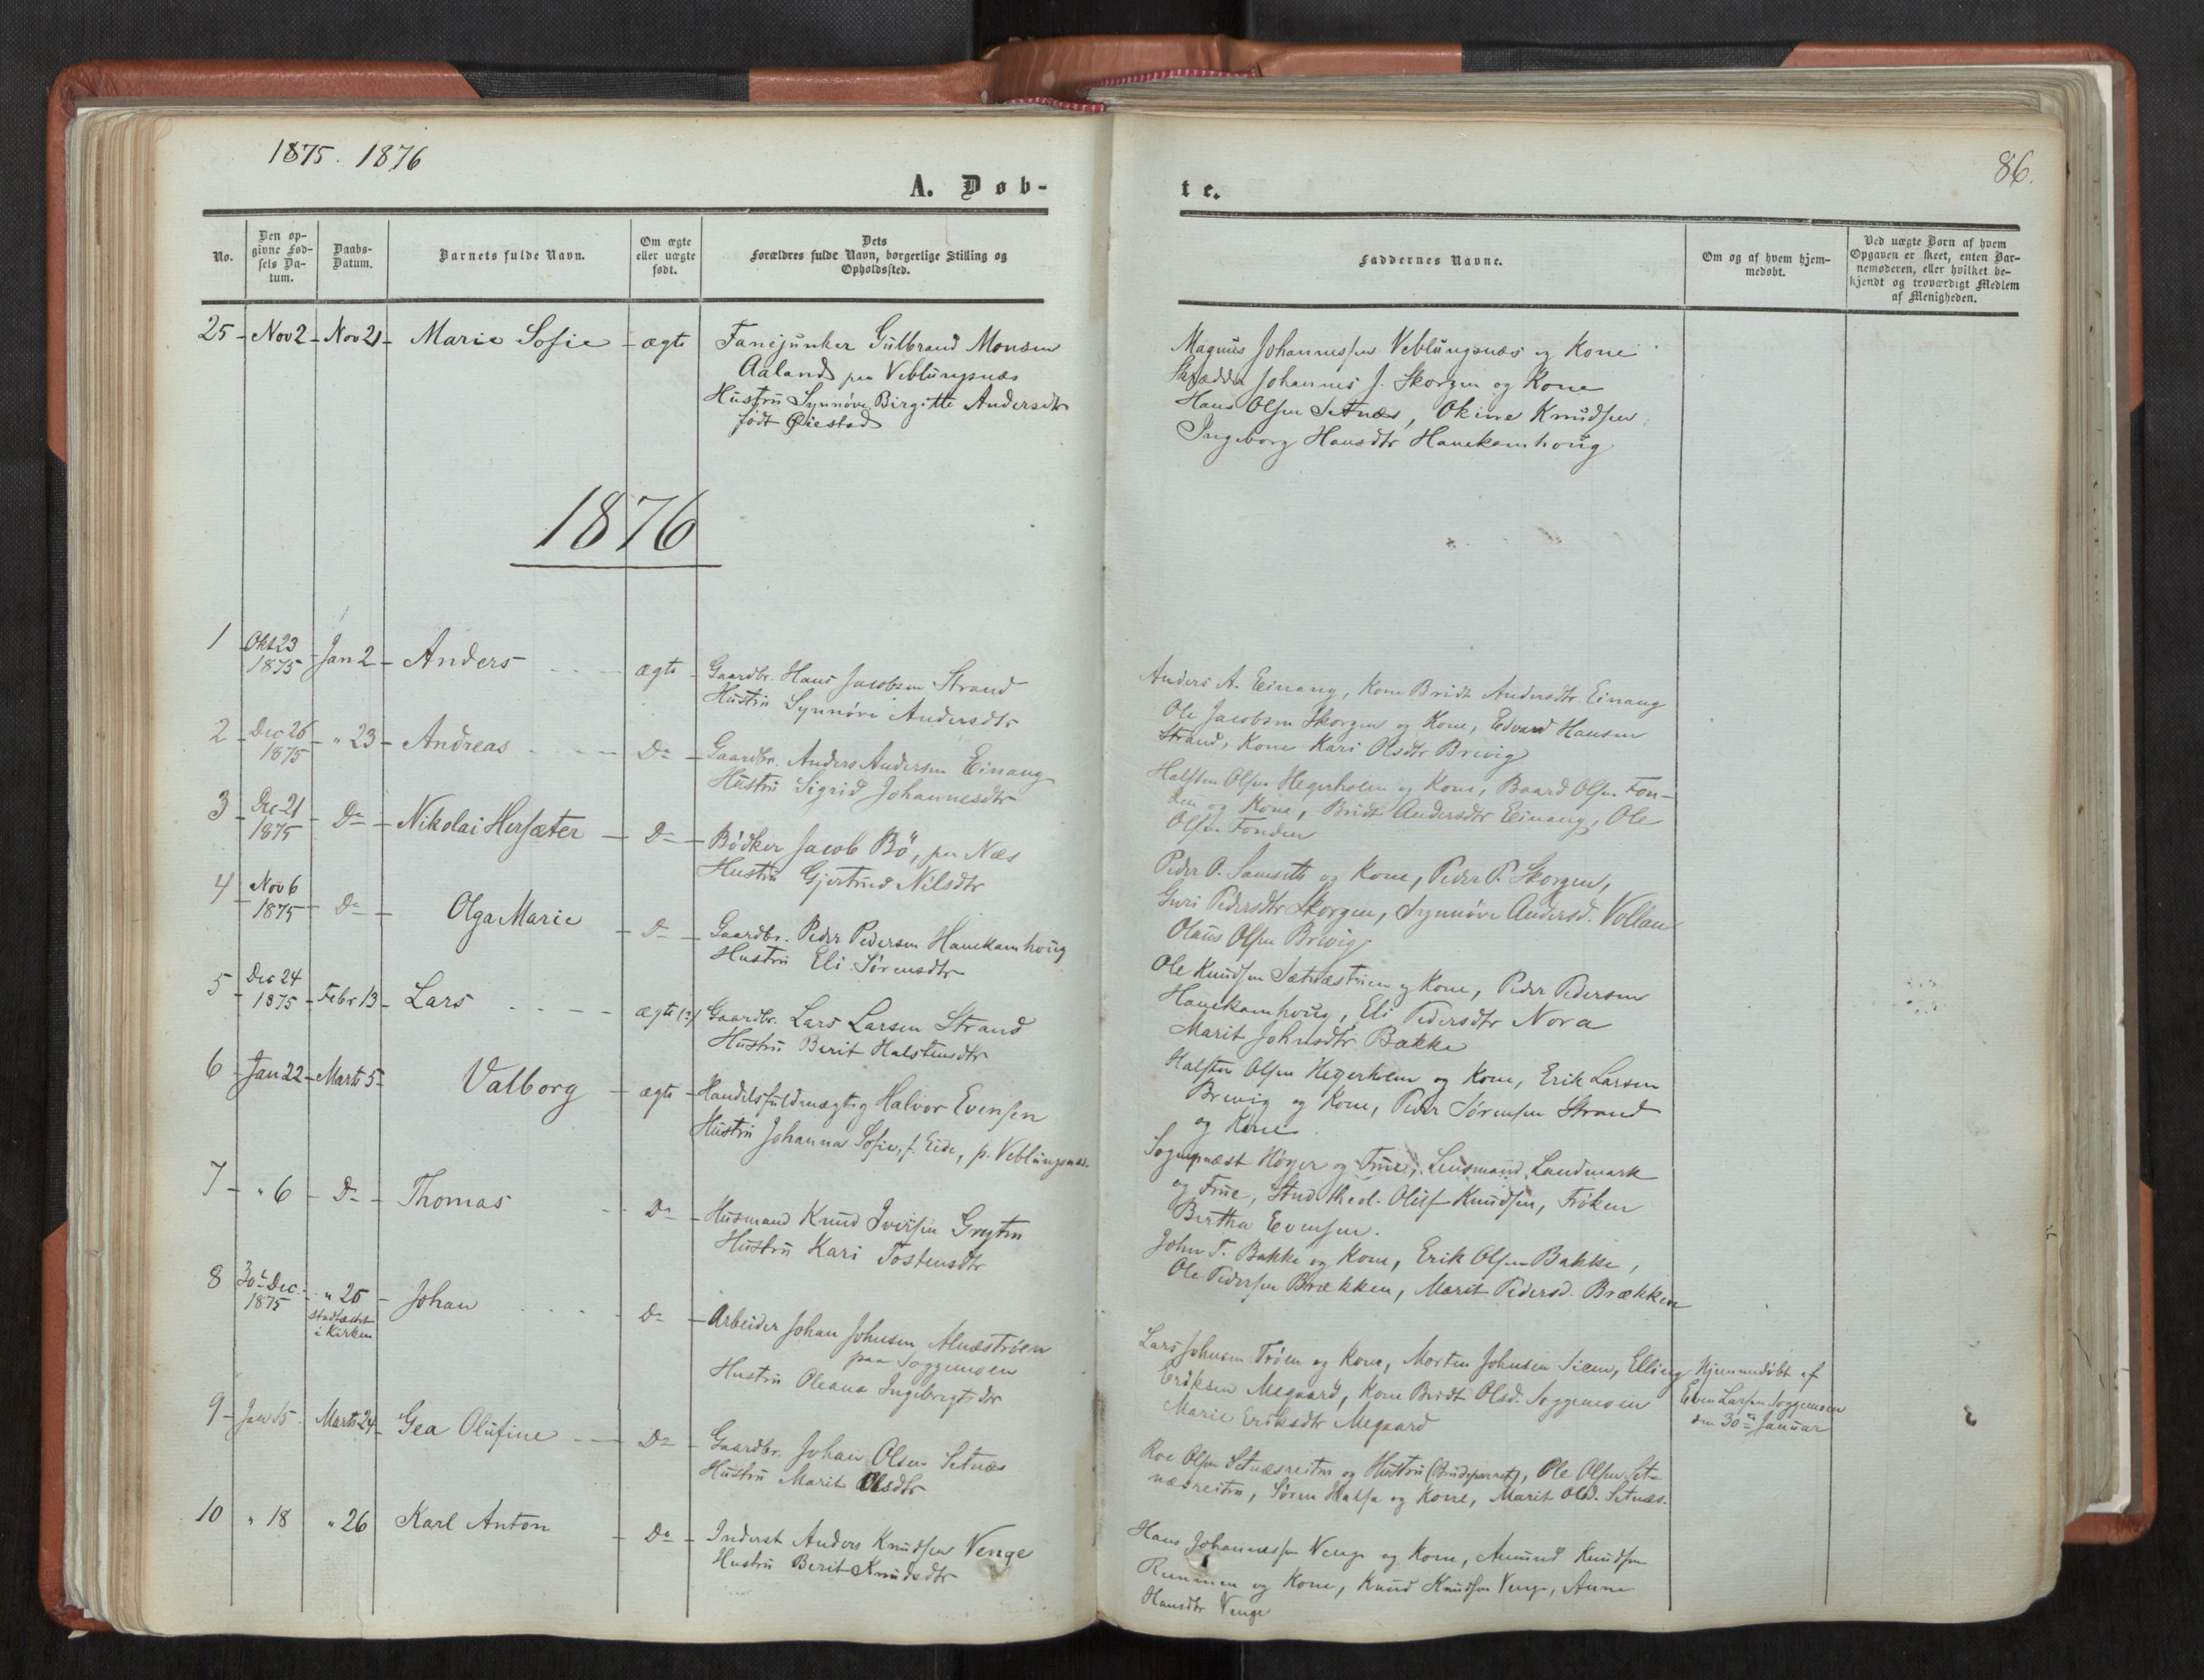 1875. 1876
A. Døb-
No.
Den op-
givne Fød-
sels Da-
tum.
Daabs-
Datum.
Barnets fulde Navn.
Om ægte
eller uægte
født.
Dets
Forældres fulde Navn, borgerlige Stilling og
Opholdssted.
25 - Nov 2 - Nov 21 - Marie Sofie - ægte
Fanejunker Gulbrand Monsen
Aaland paa Veblungsnæs
Hustru Synnøve Birgitte Andersdtr
født Øiestad
1876
1 Okt 23 1875 - Jan 2 - Anders - ægte - Gaardbr. Hans Jacobsen Strand
Hustru Synnøve Andersdtr
2 - Dec 26 1875 - " 23 - Andreas - Do - Gaardbr. Anders Andersen Einang
Hustru Sigrid Johannesdtr
3 - Dec 21 1875 - Do - Nikolai Hersæter - Do - Bødker Jacob Bö, paa Næs
Hustru Gjertrud Nilsdtr
4 - Nov 6 1875 - Do - Olga Marie - Do - Gaardbr. Peder Pedersen Hanekamhoug
Hustru Eli Sørensdtr
5 - Dec 24 1875 - Febr 13 - Lars - ægte (?) Gaardbr. Lars Larsen Strand
Hustru Berit Halstensdtr
6 - Jan 22 - Marts 5 - Valborg - ægte - Handelsfuldmægtig Halvor Evensen
Hustru Johanna Sofie, f. Eide, p. Veblungsnæs.
7 - " 6 - Do - Thomas - Do - Husmand Knud Iversen Grytten
Hustru Kari Tostensdtr
8 30te Dec. 1875 - " 26 - Johan - Do - Arbeider Johan Johnsen Alnæstrøen
stadfæstet
i Kirken
paa Soggemoen
Hustru Oleana Ingebrigtsdtr
9 - Jan 15 - Marts 24 - Gea Olufine - Do - Gaardbr. Johan Olsen Setnæs
Hustru Marit Olsdtr
10 " 18 " 26 Karl Anton - Do - Inderst Anders Knudsen Venge
Hustru Berit Knudsdtr
86.
te.
Faddernes Navne.
Om og af hvem hjem-
medøbt.
Ved uægte Børn af hvem
Opgaven er skeet, enten Bar-
nemoderen, eller hvilket be-
kjendt og troværdigt Medlem
af Menigheden.
Magnus Johannessen Veblungsnæs og Kone
Skrædder Johannes J. Skorgen og Kone
Hans Olsen Setnæs, Okine Knudsen,
Ingeborg Hansdtr Hanekamhoug
Anders A. Einang, Kone Bridt Andersdtr Einang
Ole Jacobsen Skorgen og Kone, Edvard Hansen
Strand, Kone Kari Olsdtr Brevig
Halsten Olsen Hegerholem og Kone, Baard Olsen Fon-
den og Kone, Bridt Andersdtr Einang, Ole
Olsen Fonden
Peder O. Samseth og Kone, Peder P. Skorgen,
Guri Pedersdtr Skorgen, Synnøve Andersd. Vollan
Olaus Olsen Brevig
Ole Knudsen Sætnæstrøen og Kone, Peder Pedersen
Hanekamhoug, Eli Pedersdtr Nora
Marit Johnsdtr Bakke
Halsten Olsen Hegerholem og Kone, Erik Larsen
Brevig og Kone, Peder Sørensen Strand
og Kone
Sognepræst Høyer og Frue, Lensmand Landmark
og Frue, Stud. theol. Oluf Knudsen, Frøken
Bertha Evensen.
John T. Bakke og Kone, Erik Olsen Bakke,
Ole Pedersen Brækken, Marit Pedersd. Brækken
Lars Johnsen Trøen og Kone, Morten Johnsen Sien, Elling
Eriksen Megaard, Kone Bridt Olsd. Soggemoen
Marie Eriksdtr Megaard
Hjemmedøbt af
Even Larsen Soggemoen
den 30te Januar
Roe Olsen Setnæsreiten og Hustru (Brudeparret), Ole Olsen Set-
næsreiten, Søren Halsa og Kone, Marit Olsd. Setnæs.
Hans Johannessen Venge og Kone, Amund Knudsen
og Kone, Knud Knudsen Venge, Anne
Hansdtr Venge